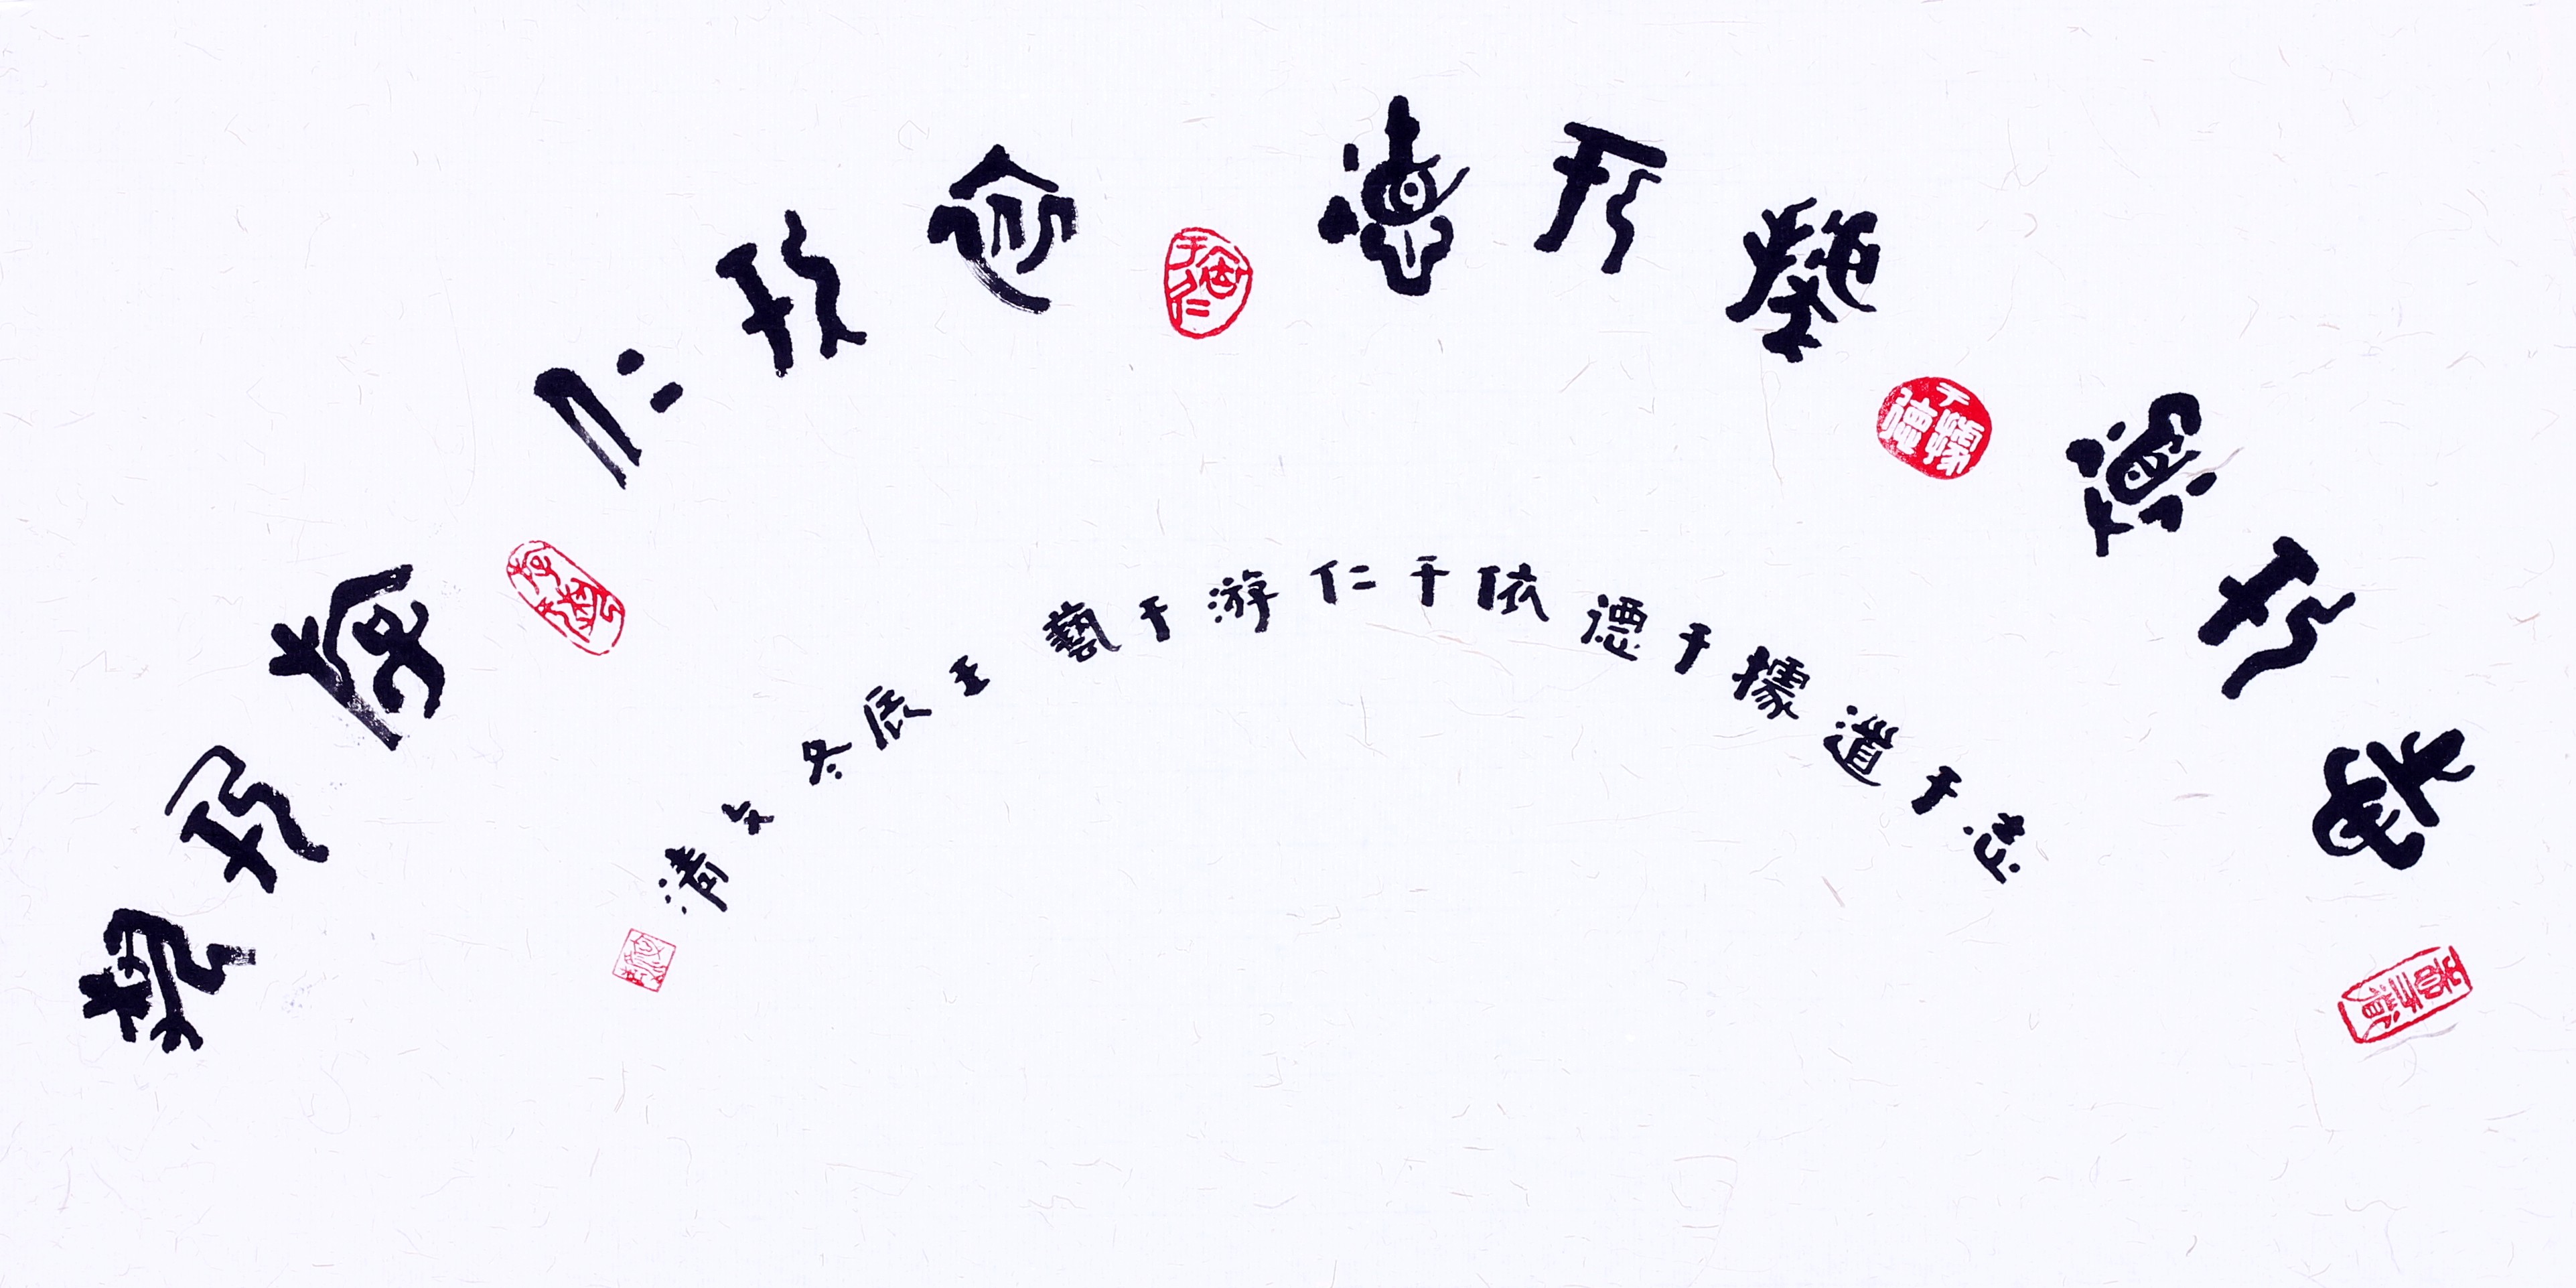 志于道據于德依于仁游于藝
志于道據于德依于仁游于藝壬辰冬
志于道
據于德
依仁
游藝